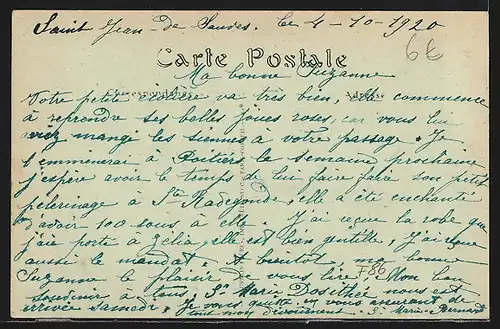 Saint Jean-de Sauves. le 4-10-1920
6€
Carte Postale
Ma bonne Suzanne
Correspondance
Adresse
Votre petite écolière va très bien, elle commence
à reprendre ses belles joues roses, car vous lui
aviez mangé les siennes à votre passage. Je
l'emminerai à Poitiers la semaine prochaine
j'espère avoir le temps de lui faire faire son petit
pelerinage à Ste Radegonde, elle a été enchantée
d'avoir 100 sous à elle. J'ai reçue la robe que
j'aie porté à Zelia, elle est bien gentille, j'ai reçue
aussi le mandat. A bientôt, ma bonne
Suzanne le plaisir de vous lire. Mon bon
F86
souvenir à tous, Sr Marie Dosithée nous est
arrivée samedi, Je vous quitte en vous assurant de
tout mon dévouement. Sr Marie-Bernard